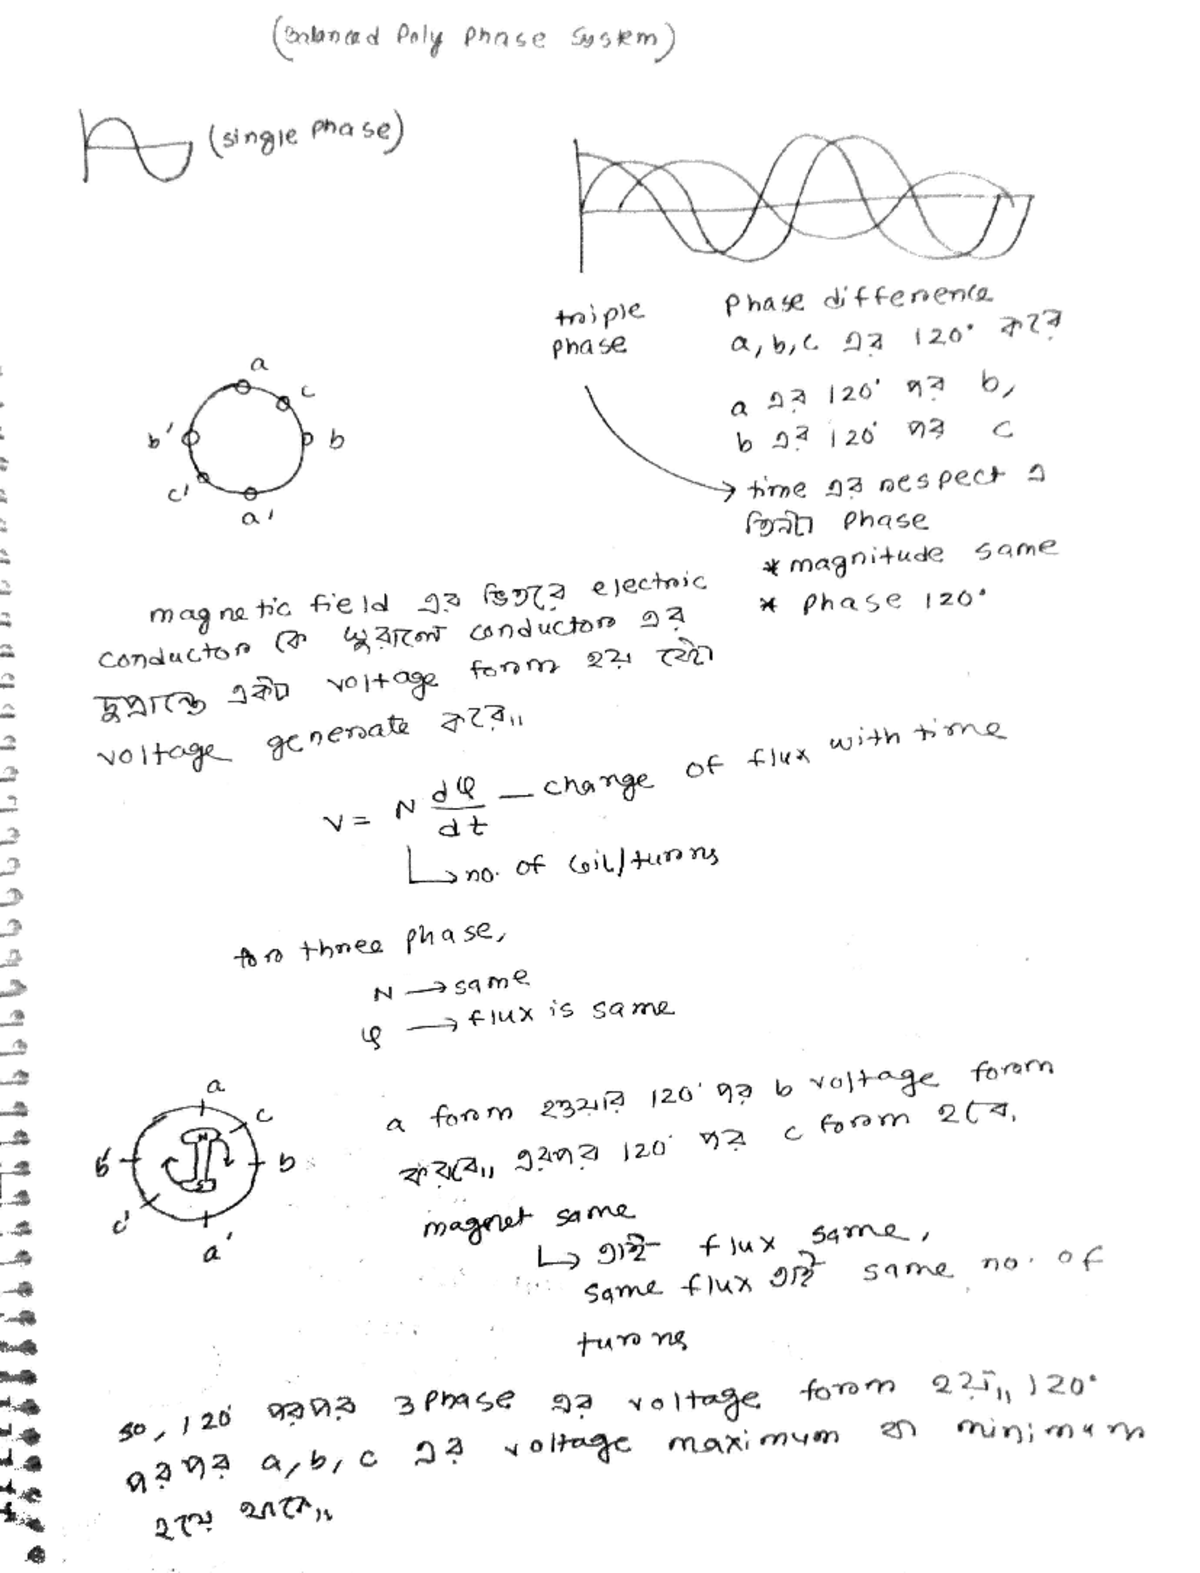 (Balanced Poly Phase System)
(single phase)
triple
phase
Phase difference
a, b, c এর 120° করে
a এর 120° পর b,
b এর 120° পর c
time এর respect এ
তিনটা phase
* magnitude same
* phase 120°
a
c
b
b'
c'
a'
magnetic field এর ভিতরে electric
conductor কে ঘুরালে conductor এর
দুপ্রান্তে একটা voltage form হয় যেটা
voltage generate করে॥
V = N dφ/dt — change of flux with time
no. of coil/turns
for three phase,
N → same
φ → flux is same
a
c
b
b'
c'
a'
N
S
a form হওয়ার 120° পর b voltage form
করবে॥ এরপর 120° পর c form হবে.
magnet same
তাই flux same,
same flux তাই same no. of
turns
so, 120° পরপর 3 phase এর voltage form হয়॥ 120°
পরপর a, b, c এর voltage maximum বা minimum
হয়ে থাকে॥